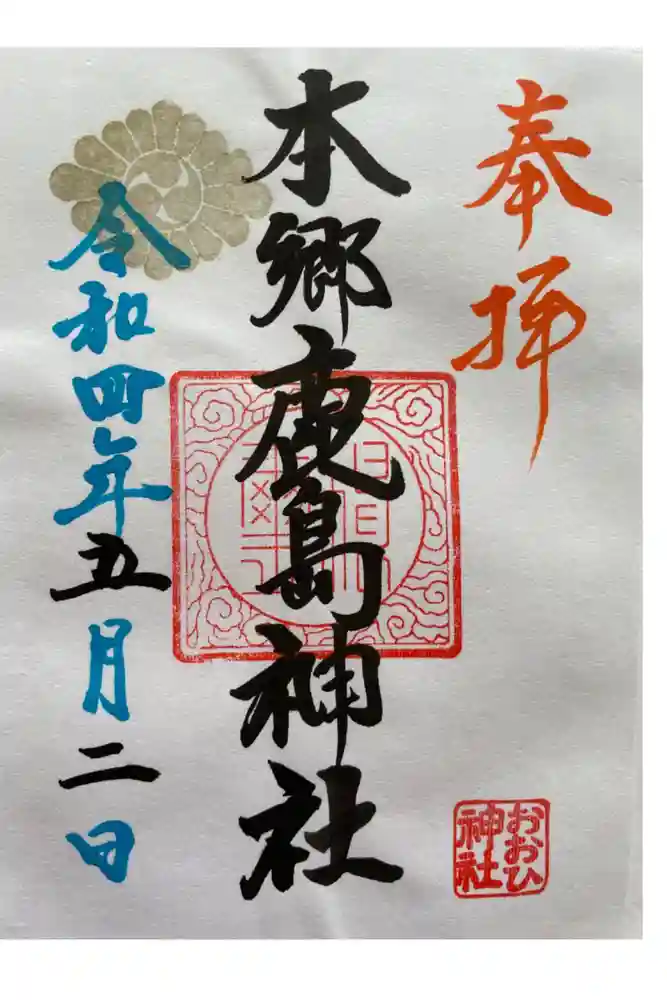 奉拝
本郷鹿島神社
令和四年五月二日
おおひ
神社